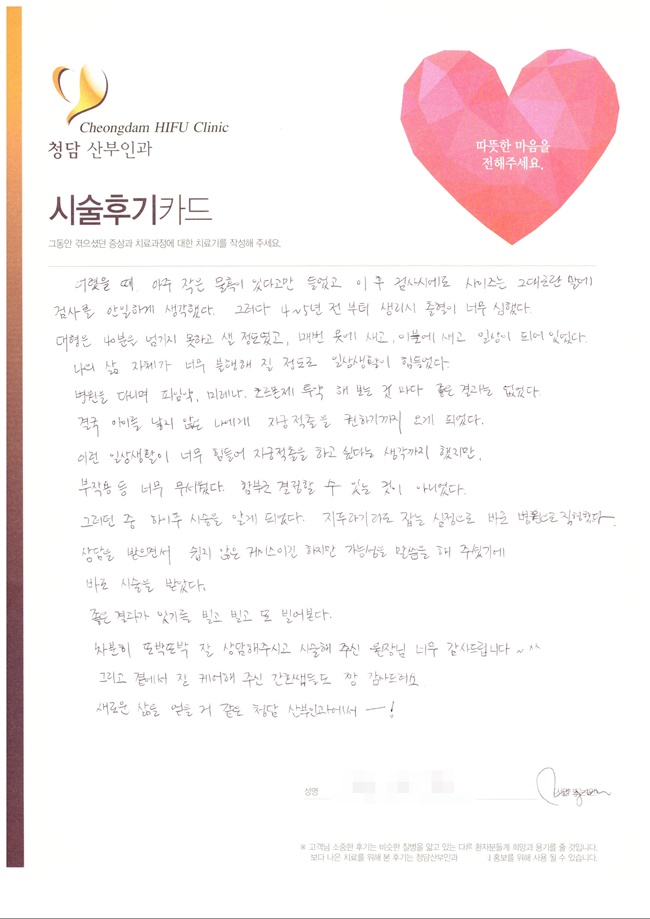 Cheongdam HIFU Clinic
청담 산부인과
따뜻한 마음을
전해주세요.
시술후기카드
그동안 겪으셨던 증상과 치료과정에 대한 치료기를 작성해 주세요.
어렸을 때 아주 작은 물혹이 있다고만 들었고 이후 검사시에도 사이즈는 그대로란 말에
검사를 안일하게 생각했다. 그러다 4~5년 전부터 생리시 출혈이 너무 심했다.
대형은 40분은 넘기지 못하고 샐 정도였고, 매번 옷에 새고, 이불에 새고 일상이 되어 있었다.
나의 삶 자체가 너무 불행해 질 정도로 일상생활이 힘들었다.
병원을 다니며 피임약, 미레나, 호르몬제 투약 해 보는 것 마다 좋은 결과는 없었다.
결국 아이를 낳지 않은 나에게 자궁적출을 권하기까지 오게 되었다.
이런 일상생활이 너무 힘들어 자궁적출을 하고 싶다는 생각까지 했지만,
부작용 등 너무 무서웠다. 함부로 결정할 수 있는 것이 아니었다.
그러던 중 하이푸 시술을 알게 되었다. 지푸라기라도 잡는 심정으로 바로 병원으로 직행했다
상담을 받으면서 쉽지 않은 케이스이긴 하지만 가능성을 말씀을 해 주셨기에
바로 시술을 받았다.
좋은 결과가 있기를 빌고 빌고 또 빌어본다.
차분히 또박또박 잘 상담해주시고 시술해 주신 원장님 너무 감사드립니다 ~ ^^
그리고 곁에서 잘 케어해 주신 간호쌤들도 짱 감사드려요
새로운 삶을 얻을 거 같은 청담 산부인과에서 ー!
성명
※ 고객님 소중한 후기는 비슷한 질병을 앓고 있는 다른 환자분들게 희망과 용기를 줄 것입니다.
보다 나은 치료를 위해 본 후기는 청담산부인과 홍보를 위해 사용 될 수 있습니다.